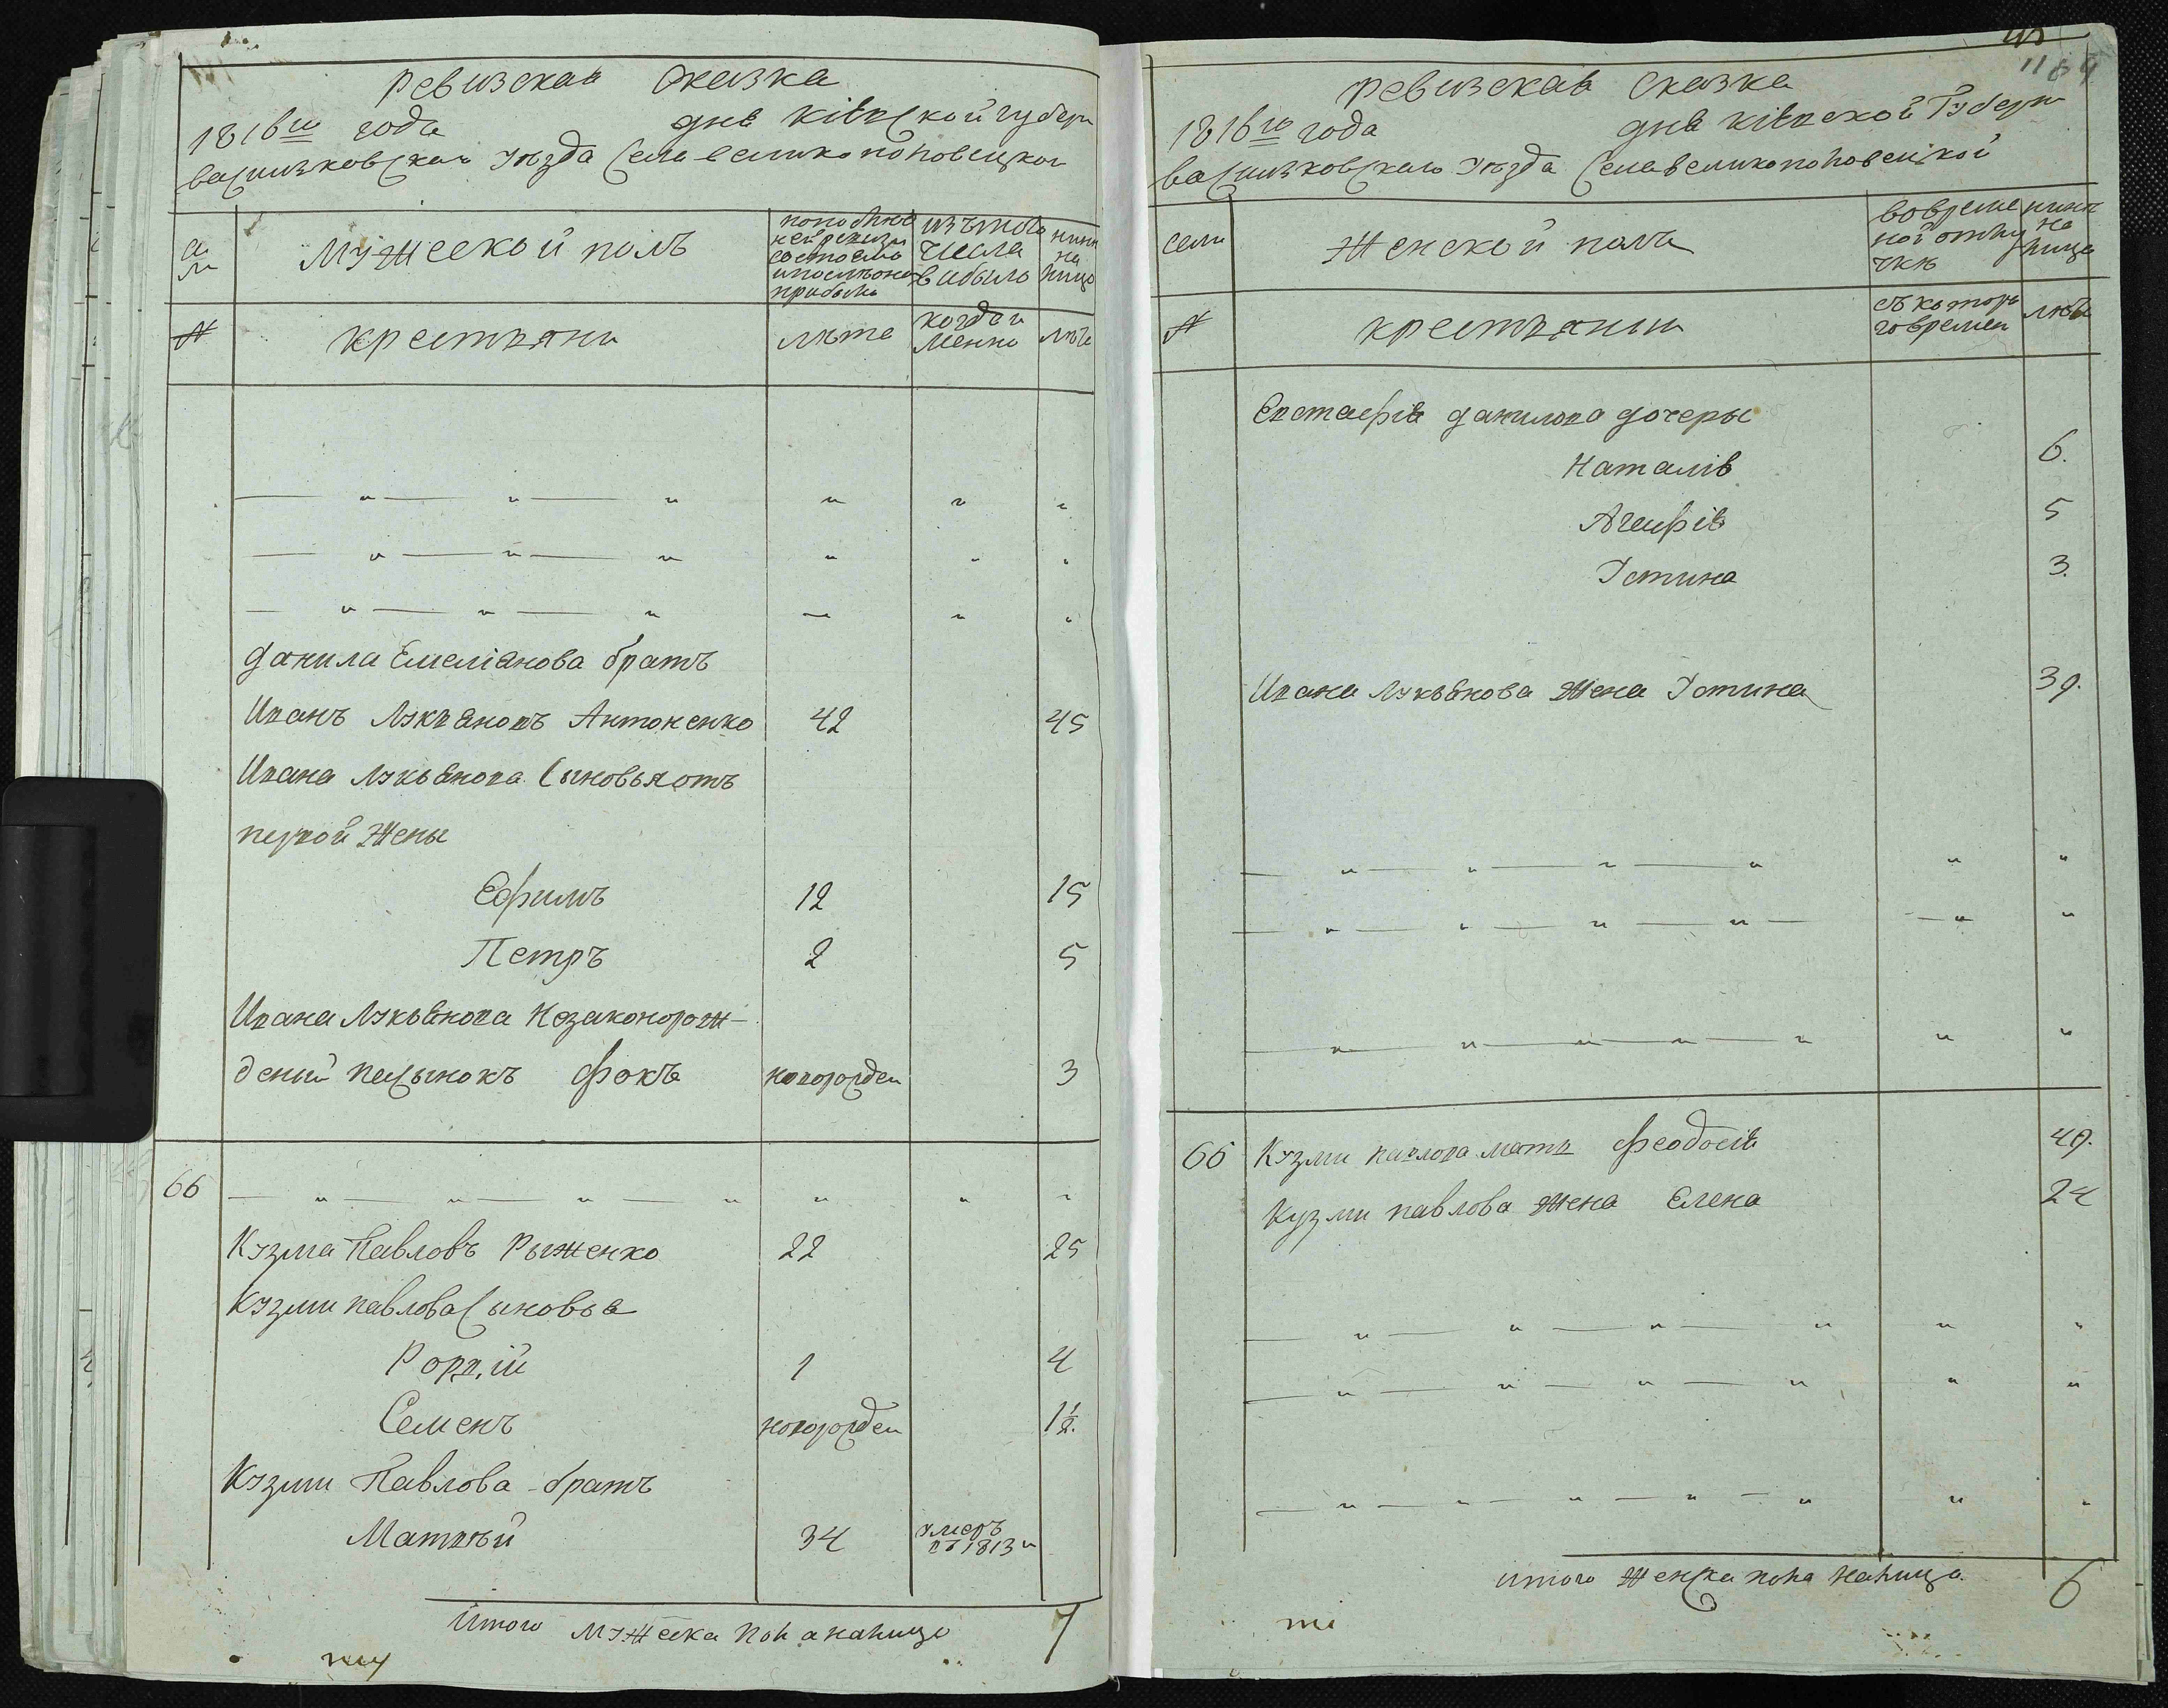 Ревизская Сказка
1816го года дня Кіевской губерн
васильковскаго уѣзда Села великополовецкои
мужеской полъ
попослѣдней ревизи состояло и послѣ оной прибыло
изътого числа выбыло
нинѣ налицо
№
крестьяни
лѣта
когда именно
лѣта
данила Емеліянова братъ
Иванъ Лукьяновъ Антоненко 42 45
Ивана Лукьянова сыновья отъ
первой жены
Ефимъ 12 15
Петръ 2 5
Ивана Лукьянова Незаконорож-
деній песынокъ Фока новорожден 3
66
Кузма Павловъ Рыженко 22 25
Кузми павлова сыновья
Семенъ новорожден 1½.
Кузми Павлова братъ
Матвѣй 34 умеръ въ 1813м
Итого мужеска пола налицо 7
Ревизская Сказка
1816го года дня Кіевской Губерн
васильковскаго уѣзда Села великополовецкой
семи
Женской полъ
вовременной отлучкѣ
нинѣ налицо
№
крестьянки
съ котораго времен
лѣта
Евстафія данилова дочеры
Наталія 6.
Агафія 5
Устина 3.
Ивана Лукьянова жена Устина 39.
66 Кузми павлова мать Феодосія 49.
Кузми павлова жена Елена 24
итого женска пола налицо 6